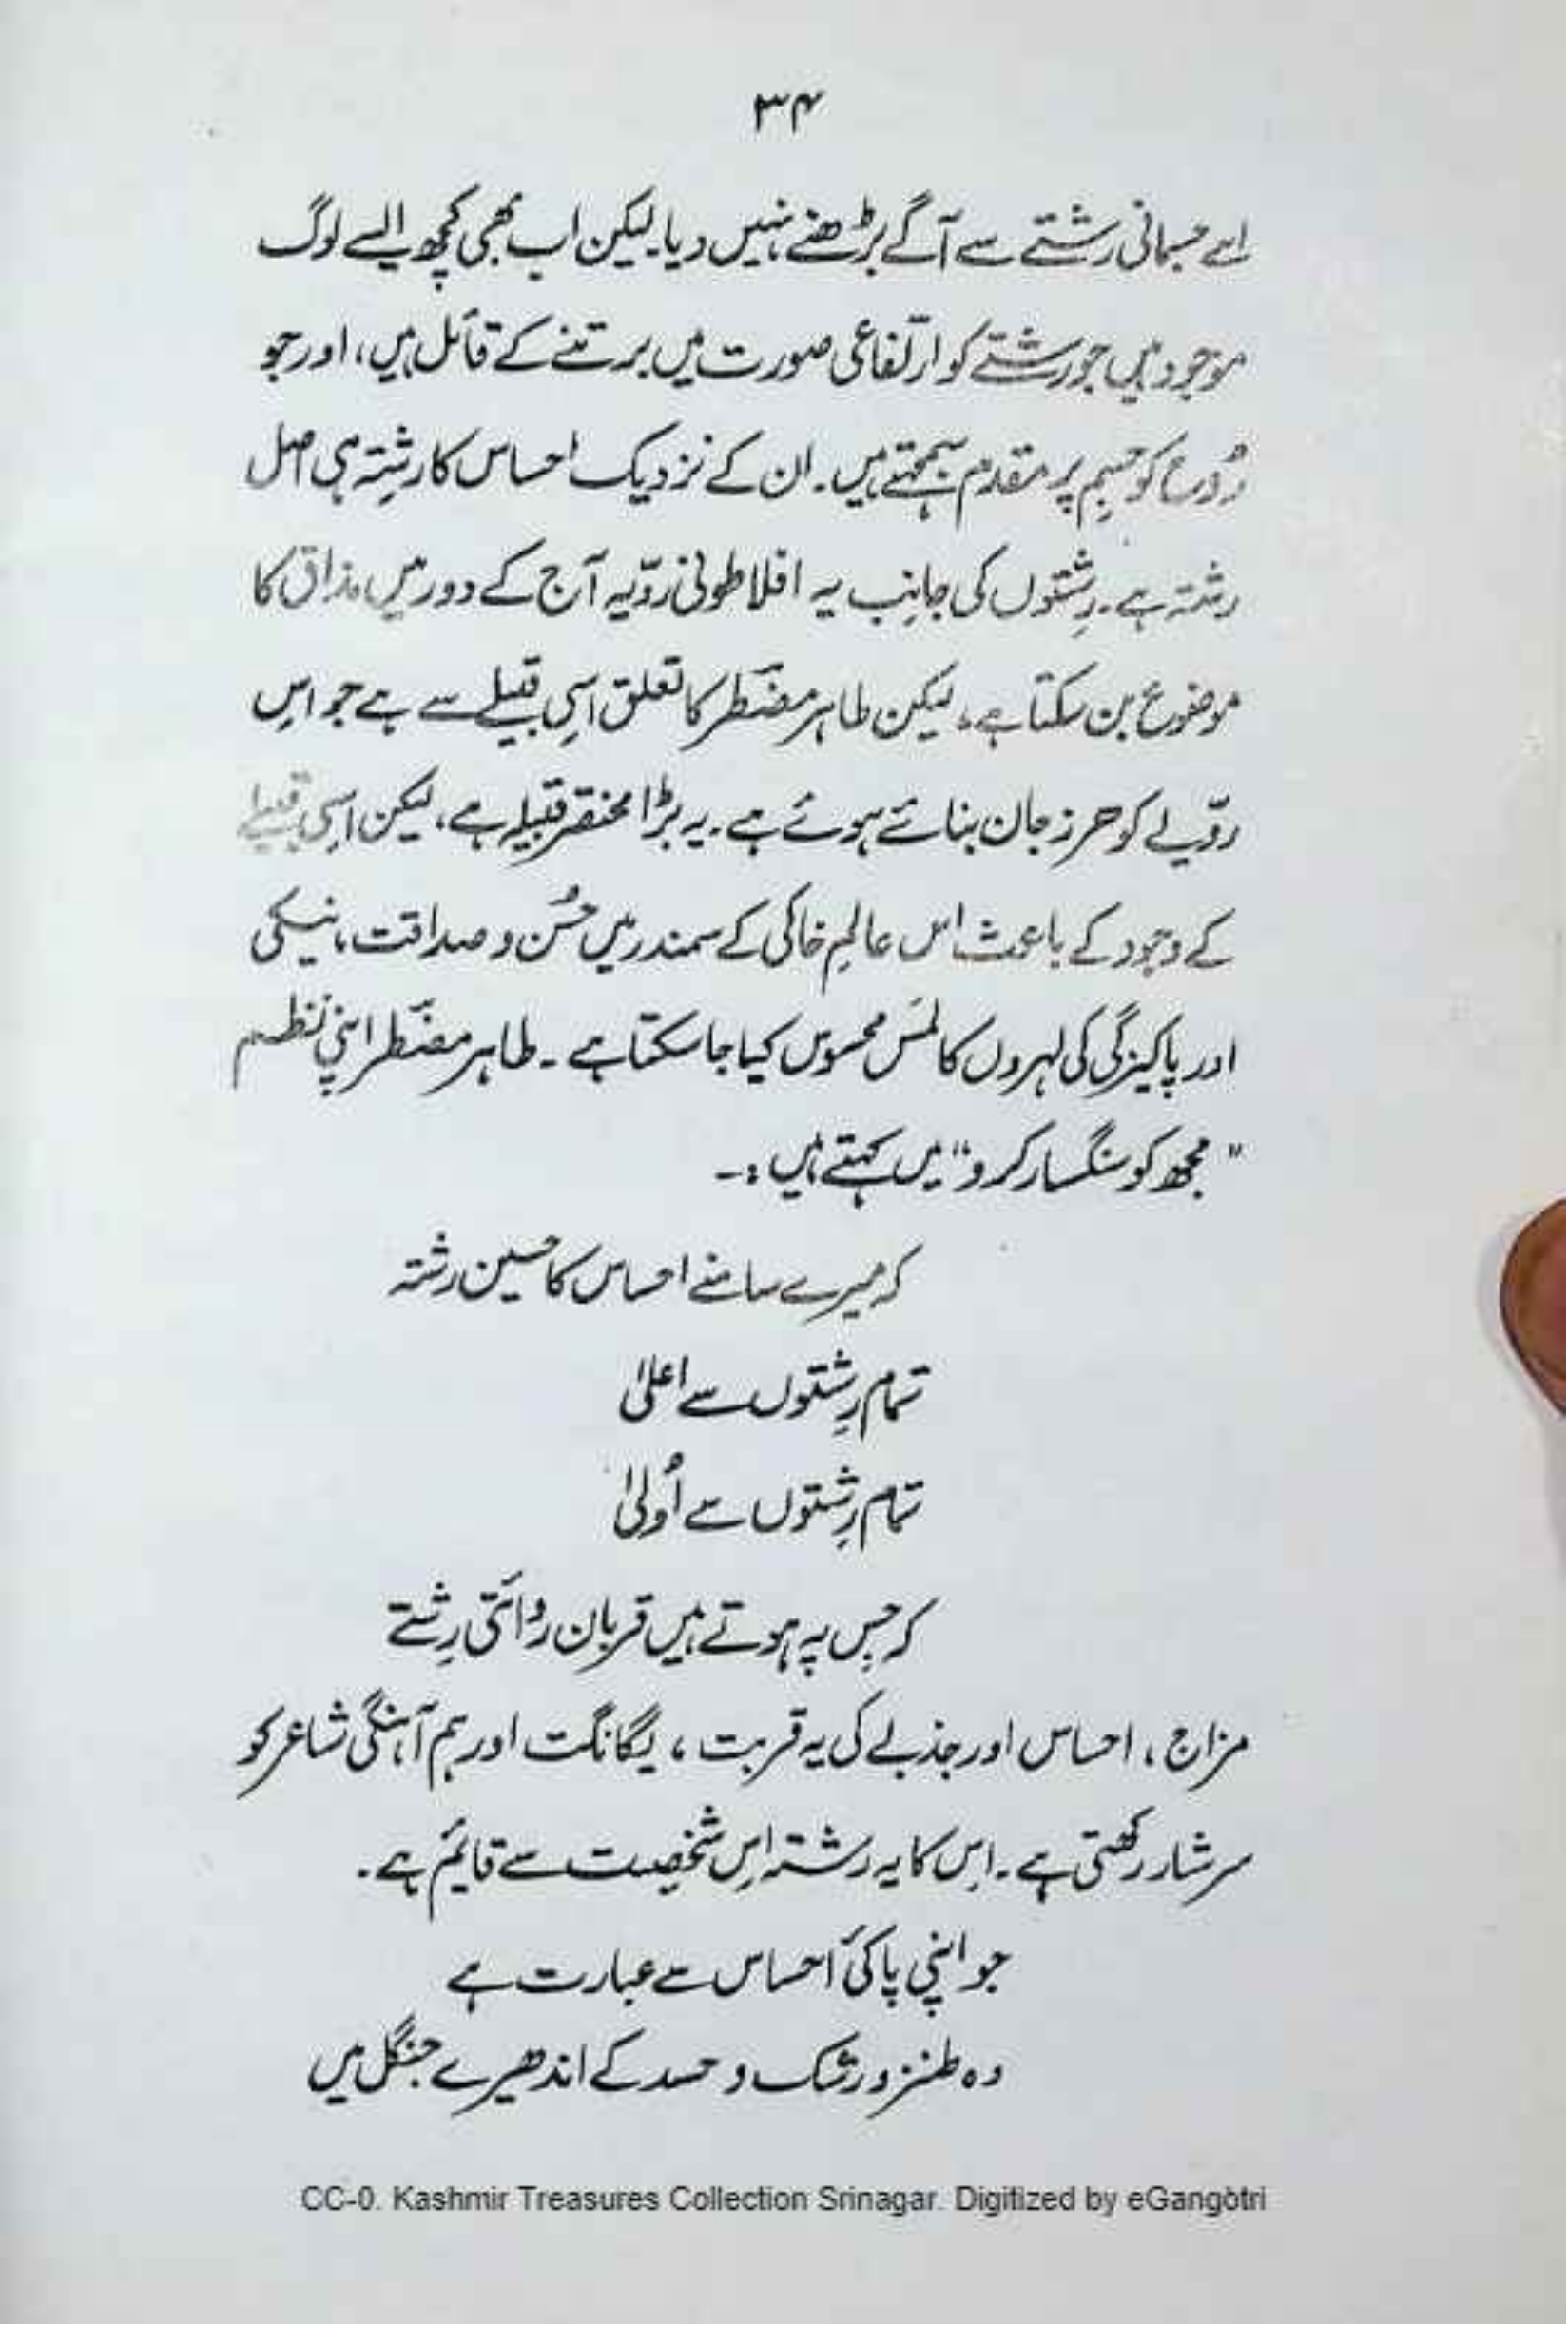 ۳۴
اسے جسمانی رشتے سے آگے بڑھنے نہیں دیا۔ لیکن اب بھی کچھ ایسے لوگ
موجود ہیں جو رشتے کو ارتفاعی صورت میں برتنے کے قائل ہیں، اور جو
رُوح کو جسم پر مقدم سمجھتے ہیں۔ ان کے نزدیک احساس کا رشتہ ہی اصل
رشتہ ہے۔ رِشتوں کی جانِب یہ افلاطونی روّیہ آج کے دور میں مذاق کا
موضوع بن سکتا ہے۔ لیکن طاہر مضطر کا تعلق اسی قبیلے سے ہے جو اس
روّیے کو حرزِ جان بنائے ہوئے ہے۔ یہ بڑا مختصر قبیلہ ہے، لیکن اسی قبیلے
کے وجود کے باعث اس عالمِ خاکی کے سمندر میں حُسن و صداقت، نیکی
اور پاکیزگی کی لہروں کا لمس محسوس کیا جا سکتا ہے۔ طاہر مضطر اپنی نظم
"مجھ کو سنگسار کرو" میں کہتے ہیں :۔
کہ میرے سامنے احساس کا حسین رشتہ
تمام رِشتوں سے اعلیٰ
تمام رِشتوں سے اُولیٰ
کہ جس پہ ہوتے ہیں قربان روائتی رِشتے
مزاج، احساس اور جذبے کی یہ قربت، یگانگت اور ہم آہنگی شاعر کو
سرشار رکھتی ہے۔ اس کا یہ رشتہ اس شخصیت سے قائم ہے۔
جو اپنی پاکئ احساس سے عبارت ہے
وہ طنز و رشک و حسد کے اندھیرے جنگل میں
CC-0. Kashmir Treasures Collection Srinagar. Digitized by eGangotri